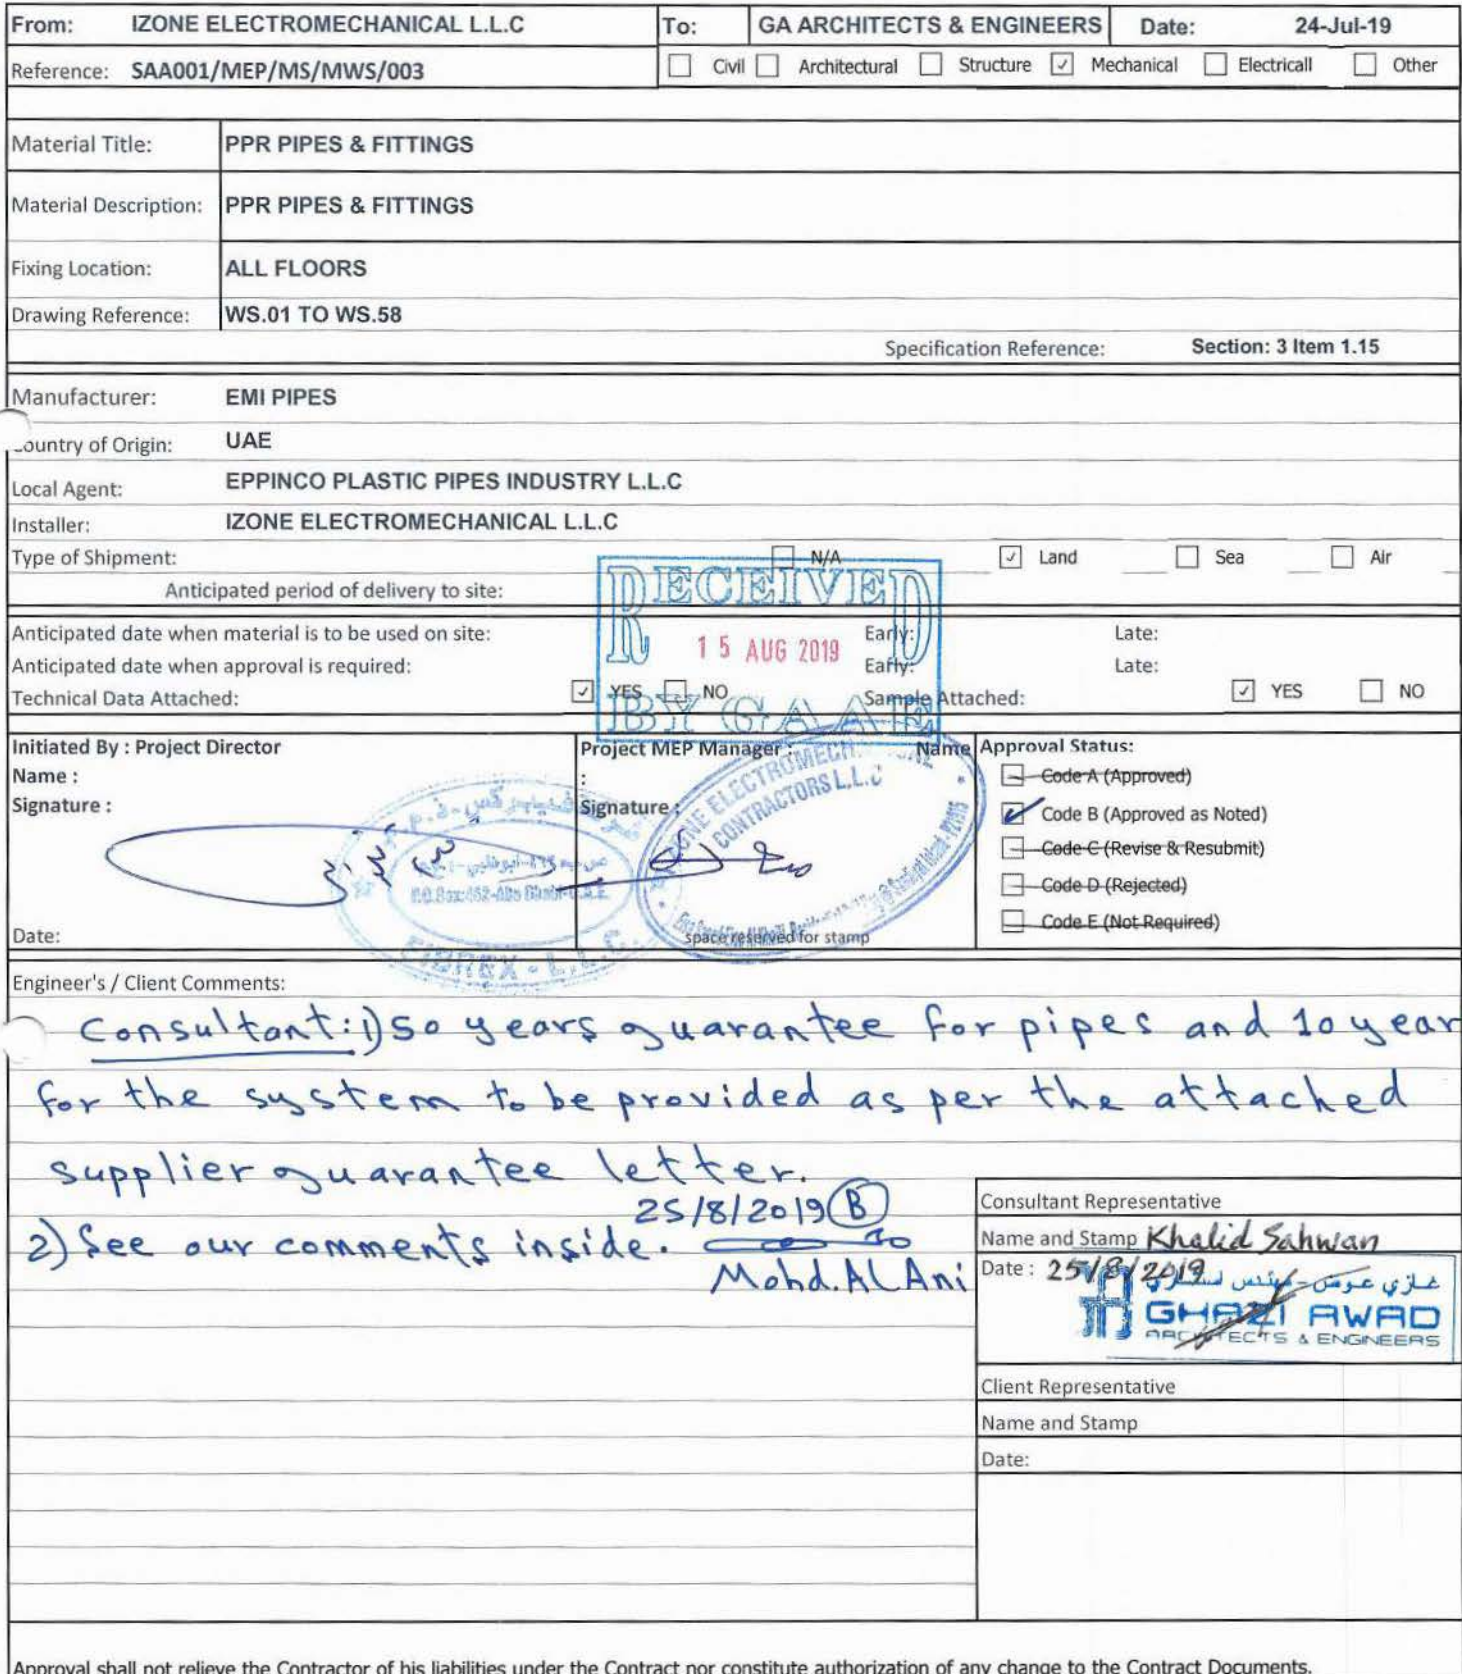 From: IZONE ELECTROMECHANICAL L.L.C To: GA ARCHITECTS & ENGINEERS Date: 24-Jul-19
Reference: SAA001/MEP/MS/MWS/003 Civil Architectural Structure Mechanical Electricall Other
Material Title: PPR PIPES & FITTINGS
Material Description: PPR PIPES & FITTINGS
Fixing Location: ALL FLOORS
Drawing Reference: WS.01 TO WS.58
Specification Reference: Section: 3 Item 1.15
Manufacturer: EMI PIPES
ountry of Origin: UAE
Local Agent: EPPINCO PLASTIC PIPES INDUSTRY L.L.C
Installer: IZONE ELECTROMECHANICAL L.L.C
Type of Shipment: N/A Land Sea Air
Anticipated period of delivery to site:
RECEIVED
15 AUG 2019
BY GAAE
Anticipated date when material is to be used on site: Early: Late:
Anticipated date when approval is required: Early: Late:
Technical Data Attached: YES NO Sample Attached: YES NO
Initiated By : Project Director Project MEP Manager : Name Approval Status:
Name : : Code A (Approved)
Signature : Signature : Code B (Approved as Noted)
Code C (Revise & Resubmit)
Code D (Rejected)
Code E (Not Required)
CONTRACTORS L.L.C
P.O.Box:462-Abu Dhabi-U.A.E.
FIBREX - L.L.C.
Date: space reserved for stamp
Engineer's / Client Comments:
Consultant: 1) 50 years guarantee for pipes and 10 year
for the system to be provided as per the attached
supplier guarantee letter.
25/8/2019 B
2) See our comments inside.
Mohd. AL Ani
Consultant Representative
Name and Stamp Khalid Sahwan
Date : 25/8/2019
غازي عوض - مهندس استشاري
GHAZI AWAD
ARCHITECTS & ENGINEERS
Client Representative
Name and Stamp
Date:
Approval shall not relieve the Contractor of his liabilities under the Contract nor constitute authorization of any change to the Contract Documents.